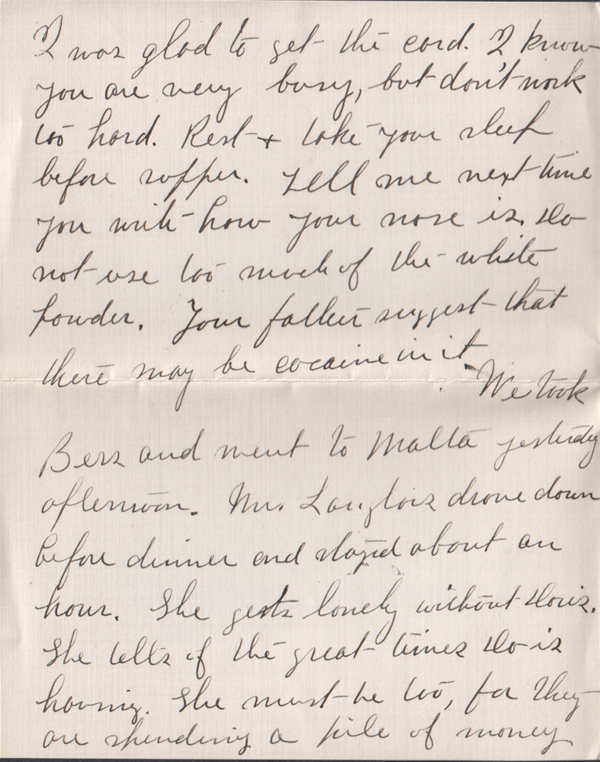 I was glad to get the card. I know
you are very busy, but don't work
too hard. Rest + take your sleep
before supper. Tell me next time
you write how your nose is. Do
not use too much of the white
powder. Your father suggest that
there may be cocaine in it
We took
Bess and went to Malta yesterday
afternoon. Mrs Langlois drove down
before dinner and stayed about an
hour. She gests lonely without Doris.
She tells of the great times Do is
having. She must be too, for they
are spending a pile of money